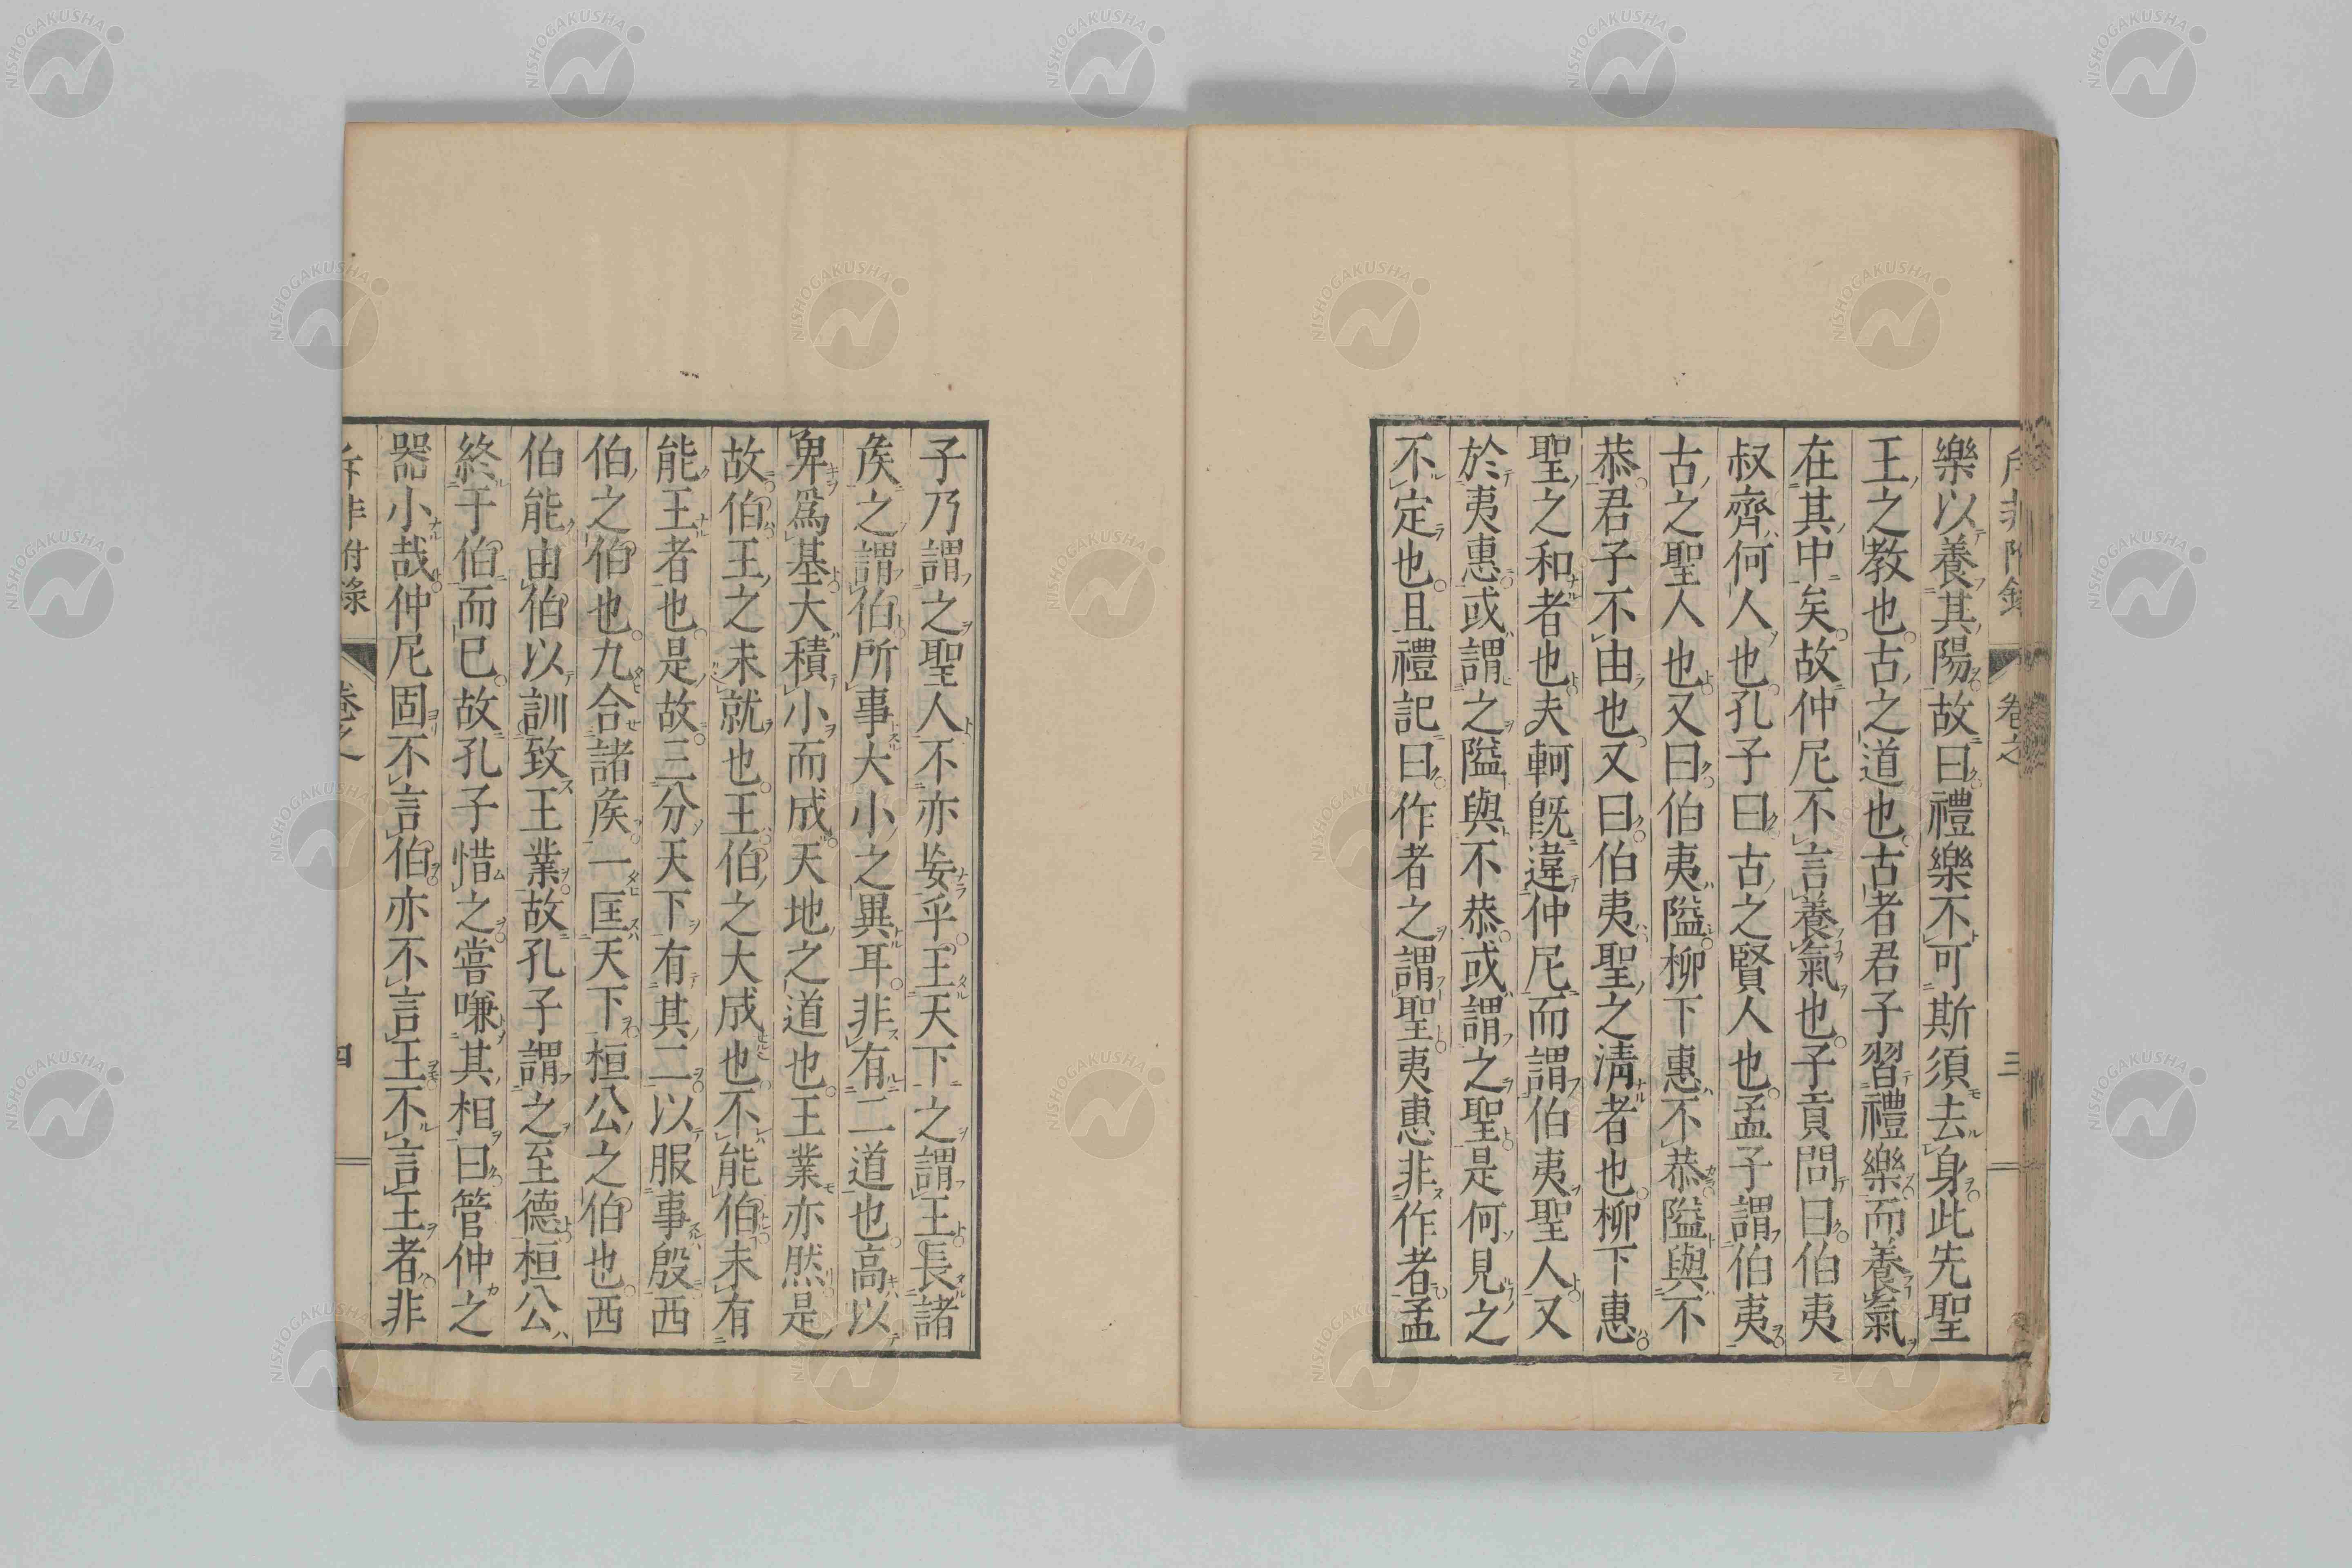 斥非附錄 卷之 三
樂以養其陽故曰禮樂不可斯須去身此先聖
王之教也古之道也古者君子習禮樂而養氣
在其中矣故仲尼不言養氣也子貢問曰伯夷
叔齊何人也孔子曰古之賢人也孟子謂伯夷
古之聖人也又曰伯夷隘柳下惠不恭隘與不
恭君子不由也又曰伯夷聖之清者也柳下惠
聖之和者也夫軻既違仲尼而謂伯夷聖人又
於夷惠或謂之隘與不恭或謂之聖是何見之
不定也且禮記曰作者之謂聖夷惠非作者孟
子乃謂之聖人不亦妄乎王天下之謂王長諸
矦之謂伯所事大小之異耳非有二道也高以
卑爲基大積小而成天地之道也王業亦然是
故伯王之未就也王伯之大成也不能伯未有
能王者也是故三分天下有其二以服事殷西
伯之伯也九合諸矦一匡天下桓公之伯也西
伯能由伯以訓致王業故孔子謂之至德桓公
終于伯而已故孔子惜之嘗嗛其相曰管仲之
器小哉仲尼固不言伯亦不言王不言王者非
斥非附錄 卷之 四
NISHOGAKUSHA